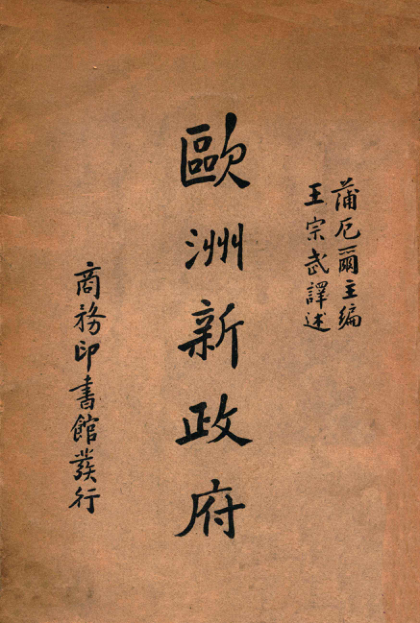 蒲厄爾主編
王宗武譯述
歐洲新政府
商務印書館發行